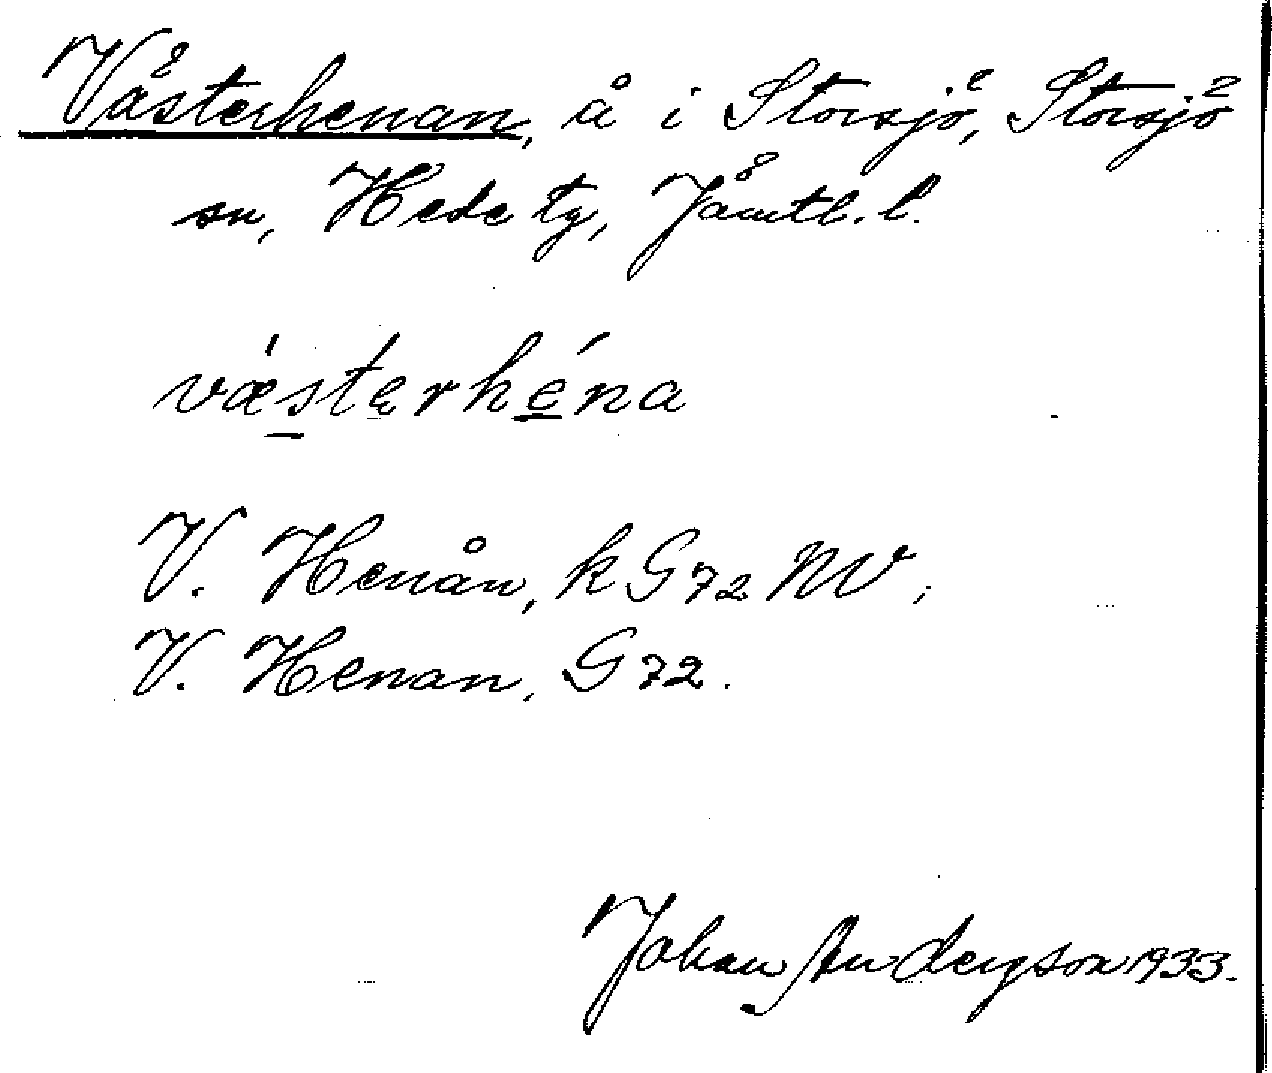 Västerhenan, å i Storsjö, Storsjö
sn, Hede tg, Jämtl. l.
vǽsterhéna
V. Henån, k G72 NV;
V. Henan, G 72.
Johan Anderzson 1933.